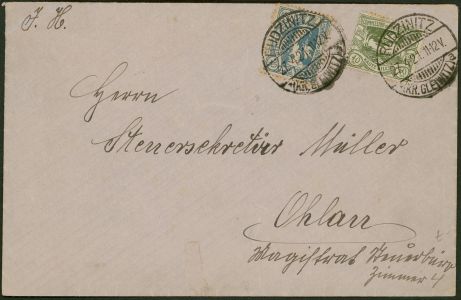 J. H.
RUDZINITZ
(KR. GLEIWITZ)
RUDZINITZ
11-12V.
(KR. GLEIWITZ)
Herrn
Steuersekretär Müller
Ohlau
Magistrat Steuerbüro
Zimmer 4